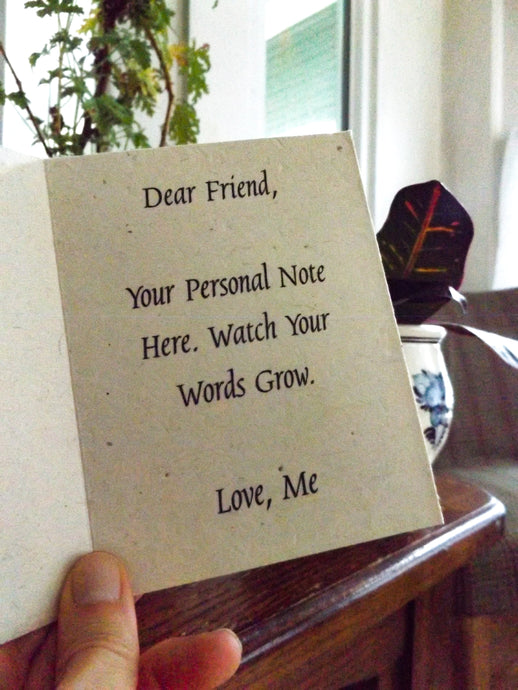 Dear Friend,
Your Personal Note
Here. Watch Your
Words Grow.
Love, Me